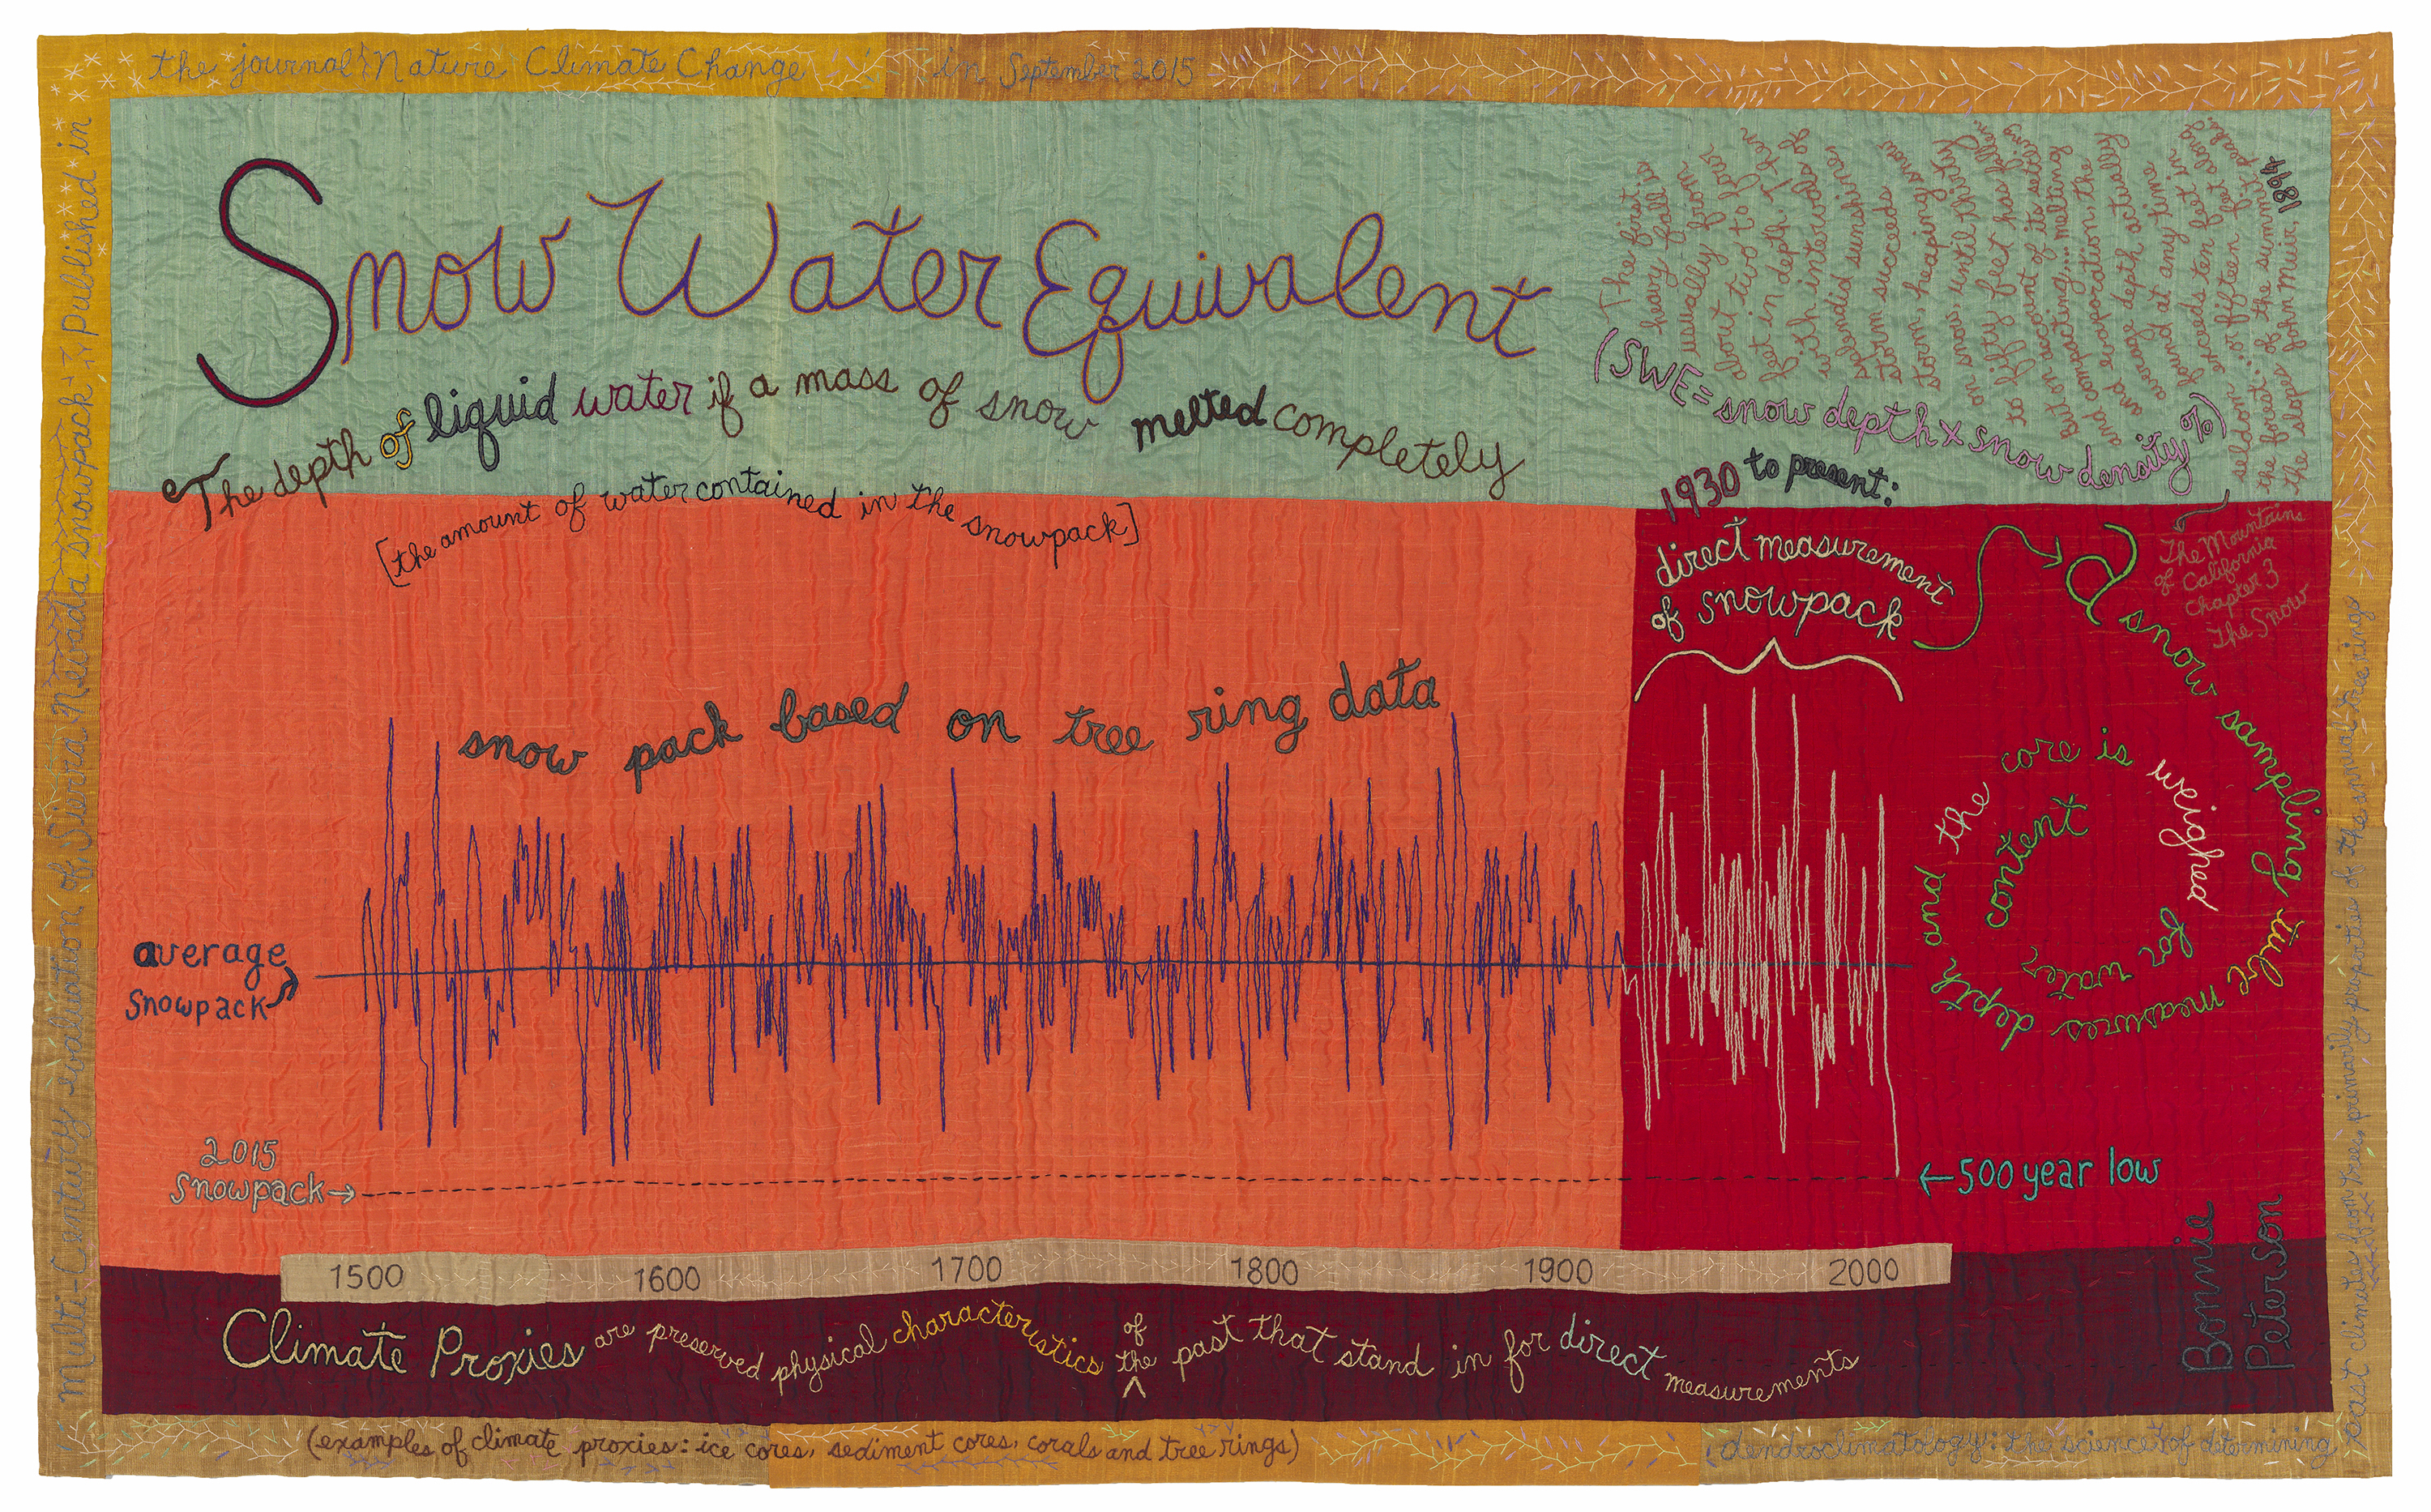 Multi-Century evaluation of Sierra Nevada snowpack
published in
the journal Nature Climate Change in September 2015
Snow Water Equivalent
The depth of liquid water if a mass of snow melted completely
[the amount of water contained in the snowpack]
The first
heavy fall is
usually from
about two to four
feet in depth. Then
with intervals of
splendid sunshine
storm succeeds
storm, heaping snow
on snow until thirty
to fifty feet has fallen.
But on account of its settling
and compacting,... melting
and evaporation, the
average depth actually
found at any time
seldom exceeds ten feet in
the forest... or fifteen feet along
the slopes of the summit peaks.
John Muir, 1894
The Mountains
of California
Chapter 3
The Snow
(SWE = snow depth x snow density %)
1930 to present:
direct measurement
of snowpack
a snow sampling tube measures depth and the core is weighed for water content
snow pack based on tree ring data
average
snowpack
2015
snowpack
500 year low
1500 1600 1700 1800 1900 2000
Climate Proxies are preserved physical characteristics of the past that stand in for direct measurements
Bonnie
Peterson
(examples of climate proxies: ice cores, sediment cores, corals and tree rings)
dendroclimatology: the science of determining
past climates from trees primarily properties of the annual tree rings